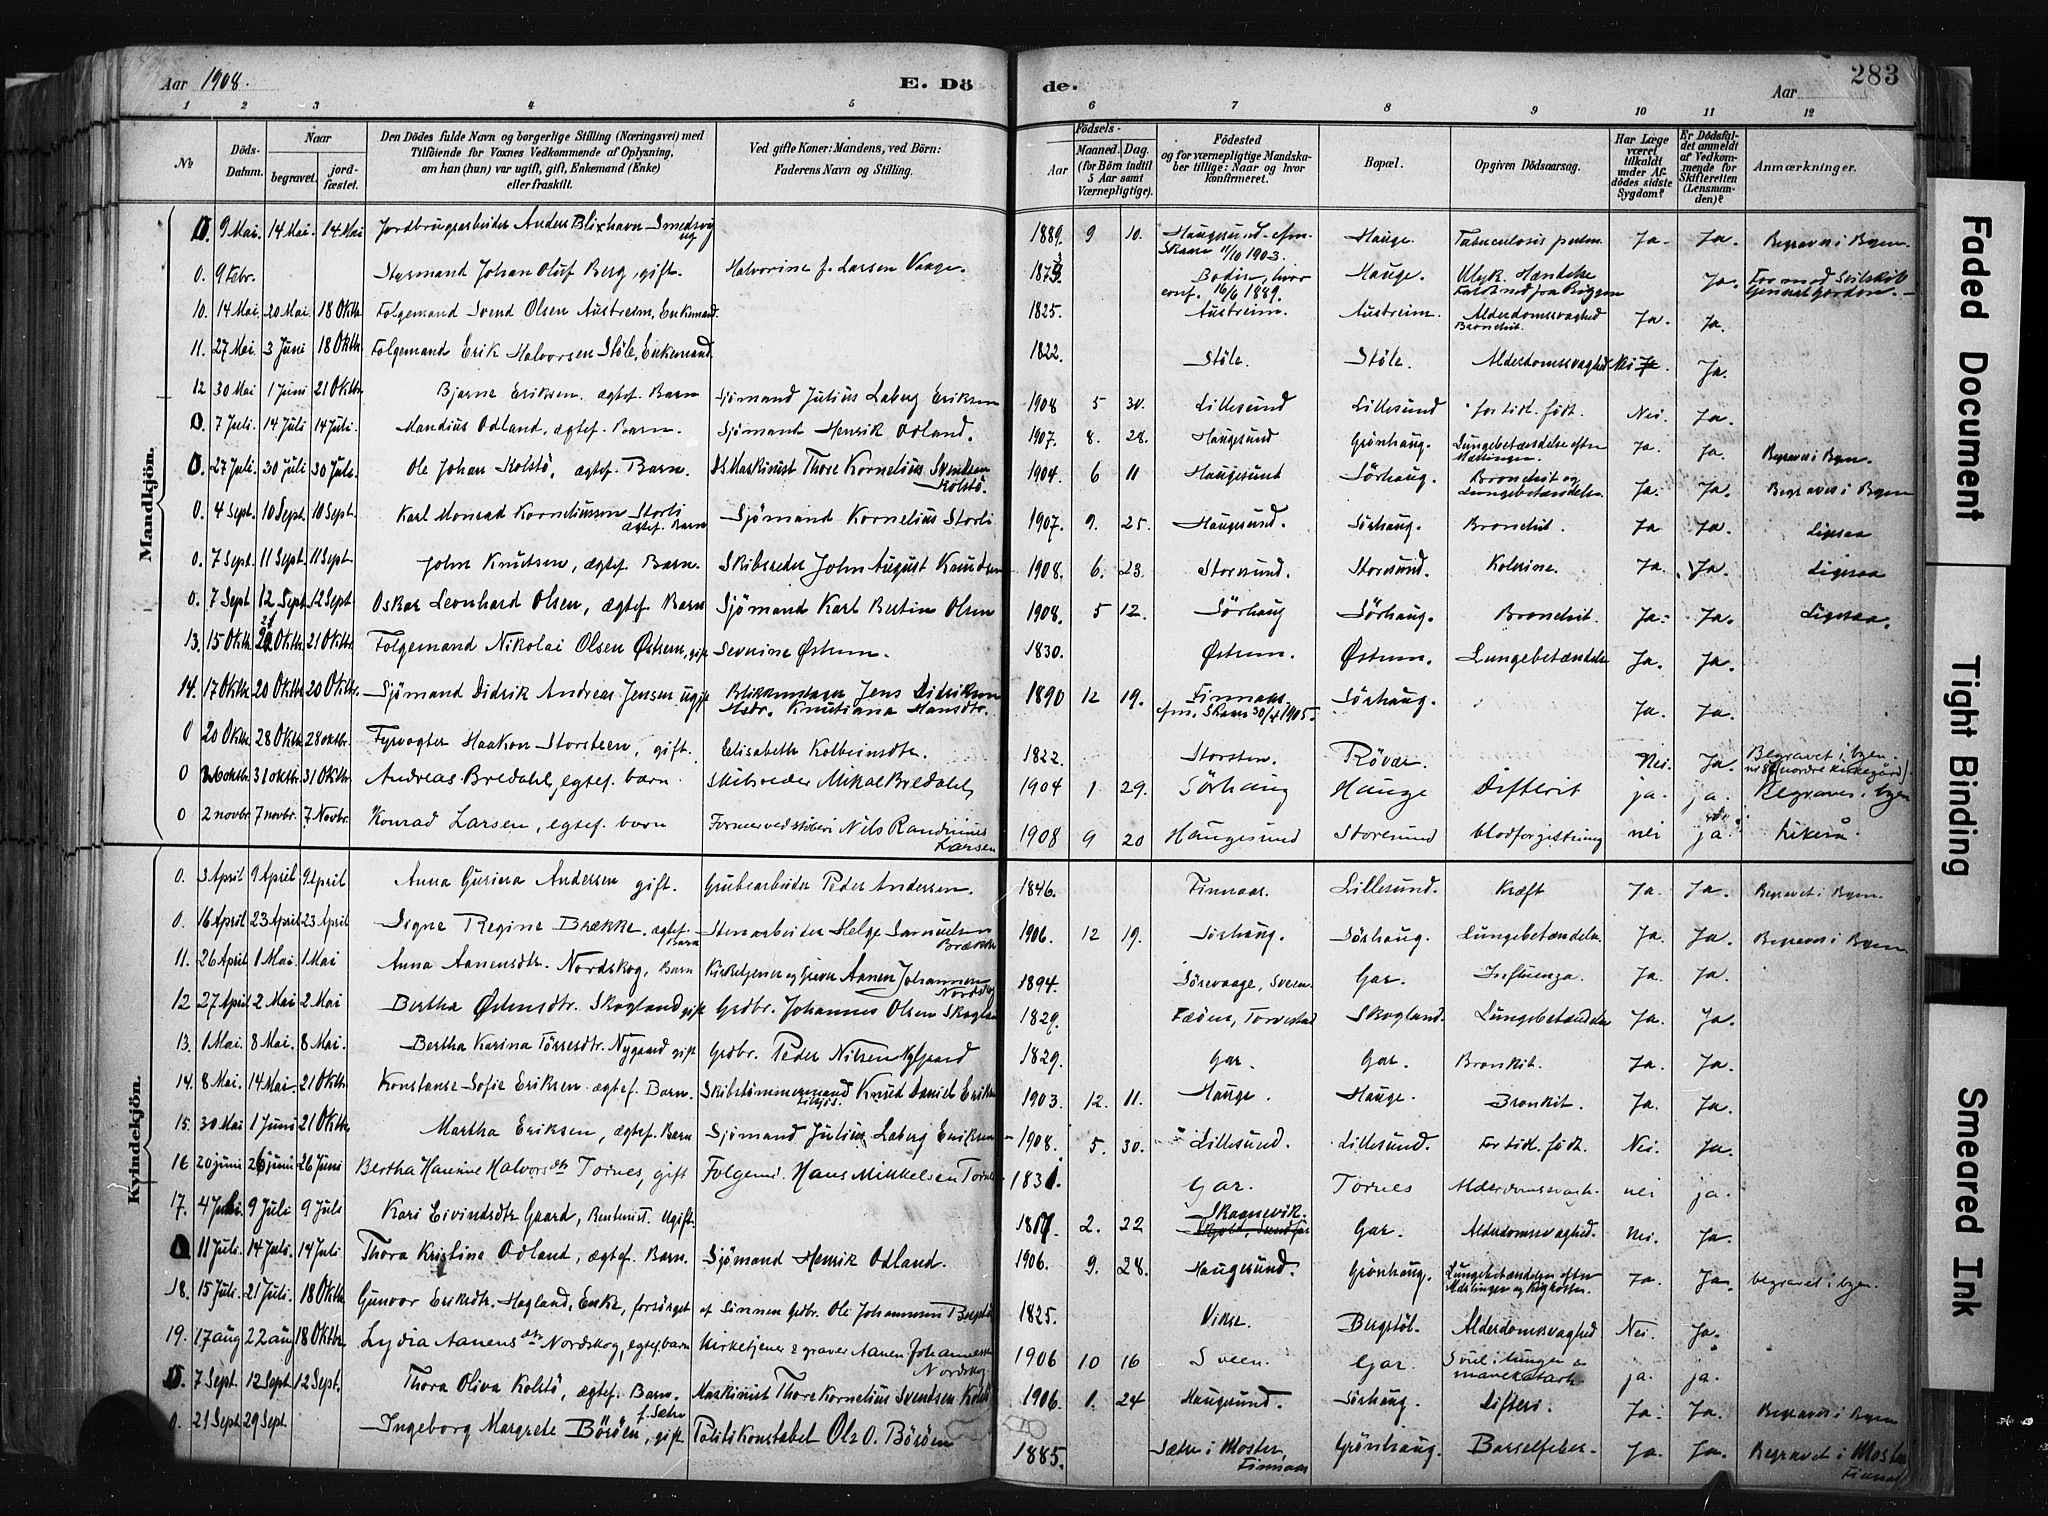 Aar 1908. E. Dö de. Aar 283
1 2 3 4 5 6 7 8 9 10 11 12
No
Döds-Datum.
Naar begravet. jord-fæstet.
Den Dödes fulde Navn og borgerlige Stilling (Næringsvei) med
Tilföiende for Voxnes Vedkommende af Oplysning,
om han (hun) var ugift, gift, Enkemand (Enke)
eller fraskilt.
Ved gifte Koner: Mandens, ved Börn:
Faderens Navn og Stilling.
Födsels-
Aar Maaned. Dag.
(for Börn indtil 5 Aar samt Værnepligtige).
Födested
og for værnepligtige Mandska-
ber tillige: Naar og hvor
konfirmeret.
Bopæl.
Opgiven Dödsaarsag.
Har Læge været tilkaldt under Af-dödes sidste Sygdom?
Er Dödsfal-det anmeldt af Vedkom-mende for Skifteretten (Lensman-den)?
Anmærkninger.
Mandkjön.
0. 9 Mai. 14 Mai. 14 Mai Jordbrugsarbeider Anders Blixhavn Smedsvig ug 1889. 9 10. Haugesund - cfm. Skaare 11/10 1903. Hauge. Tuberculosis pulm. Ja. Ja. Begravet i Byen.
0. 9 Febr. Styrmand Johan Oluf Berg, gift. Halvorine f. Larsen Vaage. Bodin, hvor conf. 16/6 1889. Hauge. Ulyk. Hændelse Faldt ned fra Riggen Ja. For med Seilskib General Gordon.
10. 14 Mai. 20 Mai. 18 Oktbr Folgemand Svend Olsen Austreim, Enkemand. 1825. Austreim. Austreim. Alderdomssvaghed Bronchit. Ja. Ja.
11. 27 Mai. 3 Juni 18 Oktbr Folgemand Erik Halvorsen Stöle, Enkemand. 1822. Stöle. Stöle. Alderdomssvaghed Nei Ja.
12 30 Mai 1 Juni 21 Oktbr Bjarne Eriksen, ægtef. Barn Sjömand Julius Laberg Eriksen 1908 5 30. Lillesund Lillesund for tidl. födt. Nei. Ja.
0. 7 Juli. 14 Juli 14 Juli. Mandius Odland, ægtef. Barn. Sjömand Henrik Odland. 1907. 8. 28. Haugesund Grönhaug. Lungebetændelse efter Mæslinger. Ja. Ja. Begravet i Byen.
0. 27 Juli. 30 Juli 30 Juli. Ole Johan Kolstö, ægtef. Barn. DS Maskinist Thore Kornelius Svendsen Kolstö. 1904. 6 11 Haugesund Sörhaug. Bronchit og Lungebetændelse. Ja. Ja. Begravet i Byen
0. 4 Sept. 10 Sept. 10 Sept. Karl Monrad Korneliussen Storli ægtef. Barn Sjömand Kornelius Storli 1907. 9. 25. Haugesund. Sörhaug. Bronchit. Ja Ja. Ligesaa
0. 7 Sept. 11 Sept. 11 Sept. John Knutsen, ægtef. Barn. Skibsreder John August Knudsen 1908. 6. 23. Storesund. Storesund. Kolerine. Ja. Ja. Ligesaa
0. 7 Sept 12 Sept 12 Sept Oskar Leonhard Olsen, ægtef. Barn Sjömand Karl Bertin Olsen 1908. 5 12. Sörhaug Sörhaug. Bronchit. Ja. Ja. Ligesaa.
13. 15 Oktbr. 21 Oktbr. 21 Oktbr. Folgemand Nikolai Olsen Östrem, gift Severine Östrem. 1830. Östrem. Östrem. Lungebetændelse Ja. Ja.
14. 17 Oktbr. 20 Oktbr. 20 Oktbr. Sjömand Didrik Andreas Jensen ugift Jens Didriksen Hstr. Knutiana Hansdtr. 1890 12 19. Finnaas. cfm. Skaare 30/4 1905. Sörhaug. Ja. Ja.
0 20 Oktbr. 28 Oktbr. 28 oktbr. Fyrvogter Haakon Storsteen, gift. Elisabeth Kolbeinsdtr. 1822. Storsten. Rövær. Nei. Ja. Begravet i byen. (nordre kirkegård).
0 26 oktbr. 31 oktbr 31 Oktbr. Andreas Bredahl, egtef. barn. Skibsreder Mikal Bredahl, 1904 1. 29. Sörhaug Hauge Difterit ja. ja. Begravet i byen
0 2 novbr. 7 novbr. 7. Novbr. Konrad Larsen, egtef. barn Formerved Nils Randinius Larsen 1908 9 20 Haugesund Storesund blodforgiftning nei ja Likeså
Kvindekjön.
0. 3 April 9 April 9 April Anna Gurina Andersen gift. Grubearbeider Peder Andersen. 1846. Finnaas. Lillesund. Kræft Ja. Ja. Begravet i Byen.
0. 16 April 23 April 23 April Signe Regine Brække. ægtef. Barn Stenarbeider Helge Samuelsen Brække 1906. 12 19. Sörhaug. Sörhaug. Lungebetændelse. Ja. Ja. Begravet i Byen
11. 26 April 1 Mai. 1 Mai Anna Aanensdtr. Nordskog, Barn Kirketjener og graver Aanen Johannesen Nordskog 1894. Sörevaage, Sveen. Gar. Influenza. Ja. Ja.
12 27 April 2 Mai 2 Mai Bertha Östensdtr. Skogland gift Grdbr. Johannes Olsen Skogland 1829. Fæöen, Torvestad Skogland. Lungebetændelse Ja. Ja.
13. 1 Mai. 8 Mai. 8 Mai. Bertha Karina Törresdtr. Nygaard gift Grdbr. Peder Nilsen Nygaard 1829. Gar. Gar. Bronkit. Ja. Ja.
14. 8 Mai. 14 Mai 21 Oktbr Konstanse Sofie Eriksen ægtef. Barn. Skibstömmermand Knud Daniel Eriksen 1903. 12. 11. Hauge. Hauge. Bronkit. Ja. Ja.
15. 30 Mai 1 Juni 21 Oktbr Martha Eriksen, ægtef. Barn Sjömand Julius Laberg Eriksen 1908. 5. 30. Lillesund. Lillesund. For tidl. födt. Nei. Ja.
16 20 juni 26 juni 26 Juni Bertha Hanine Halvorsdtr Tornes, gift Folgemd. Hans Mikkelsen Tornes 1831. Gar. Tornes Alderdomssvagh. nei ja.
17. 4 Juli 9 Juli 9 Juli Kari Eivindsdtr Gaard, Rentenist. Ugift. 2. 22 Skaanevik. Gar. Alderdomssvaghed. Nei. Ja.
0. 11 Juli. 14 Juli. 14 Juli Thora Kristine Odland, ægtef. Barn. Sjömand Henrik Odland. 1906. 9. 28. Haugesund. Grönhaug. Lungebetændelse efter Mæslinger og Kighoste. Ja. Ja. begravet i byen.
18. 15 Juli. 21 Juli. 18 Oktbr Gunvor Eriksdtr. Hagland, Enke, forsörget af Sönnen Grdbr. Ole Johannesen Bergstöl 1825. Vikse. Bergstöl. Alderdomssvaghed Nei. Ja.
19. 17 aug 22 aug 18 Oktbr Lydia Aanensdtr Nordskog, egtef. barn Kirketjener & graver Aanen Johannessen Nordskog 1906 10 16 Sveen. Gar. Svul i lunger & mavekatarh ja. ja.
0. 7 Sept. 12 Sept 12 Sept. Thora Oliva Kolstö, ægtef. Barn. Maskinist Thore Kornelius Svendsen Kolstö 1906. 1. 24 Haugesund. Sörhaug. Difteri. Ja. Ja. Begravet i Byen
0. 21 Sept. 29 Sept. Ingeborg Margrete Böröen, f. Sætre gift Politikonstabel Ole O. Böröen 1885. Sætre i Moster, Finnaas Grönhaug. Barselfeber. Ja. Ja. Begravet i Moster Finnaas
Faded Document
Tight Binding
Smeared Ink